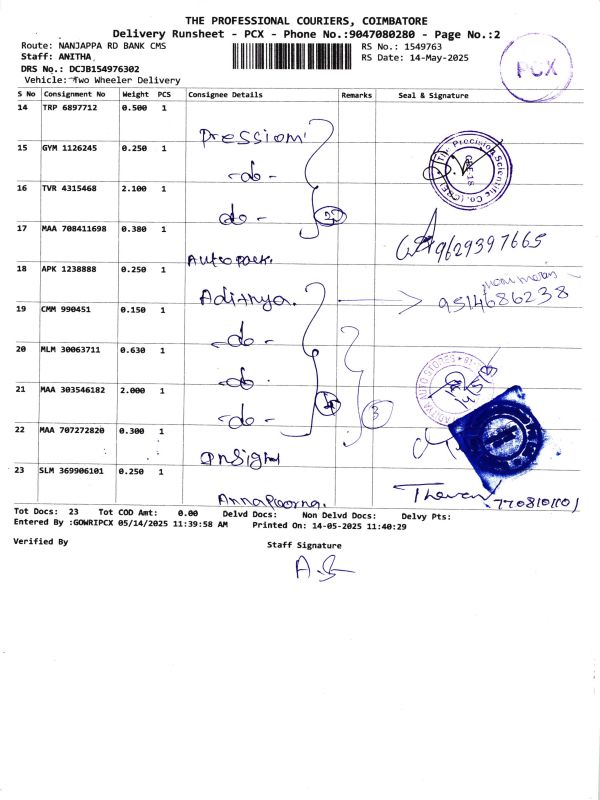 THE PROFESSIONAL COURIERS, COIMBATORE
Delivery Runsheet - PCX - Phone No.:9047080280 - Page No.:2
Route: NANJAPPA RD BANK CMS
RS No.: 1549763
Staff: ANITHA
RS Date: 14-May-2025
DRS No.: DCJB154976302
Vehicle: Two Wheeler Delivery
PCX
S No Consignment No Weight PCS Consignee Details Remarks Seal & Signature
14 TRP 6897712 0.500 1
15 GYM 1126245 0.250 1 -do-
The Precision Scientific Co. (CBE)
16 TVR 4315468 2.100 1 do -
17 MAA 708411698 0.380 1 Autopark. 9629397665
18 APK 1238888 0.250 1 Adithya. 9514686238
19 CMM 990451 0.150 1 -do-
20 MLM 30063711 0.630 1 -do-
21 MAA 303546182 2.000 1 -do- 3
ADITYA AUTO STORES
22 MAA 707272820 0.300 1
23 SLM 369906101 0.250 1 Annapoorna. 7708101101
Tot Docs: 23 Tot COD Amt: 0.00 Delvd Docs: Non Delvd Docs: Delvy Pts:
Entered By :GOWRIPCX 05/14/2025 11:39:58 AM Printed On: 14-05-2025 11:40:29
Verified By
Staff Signature